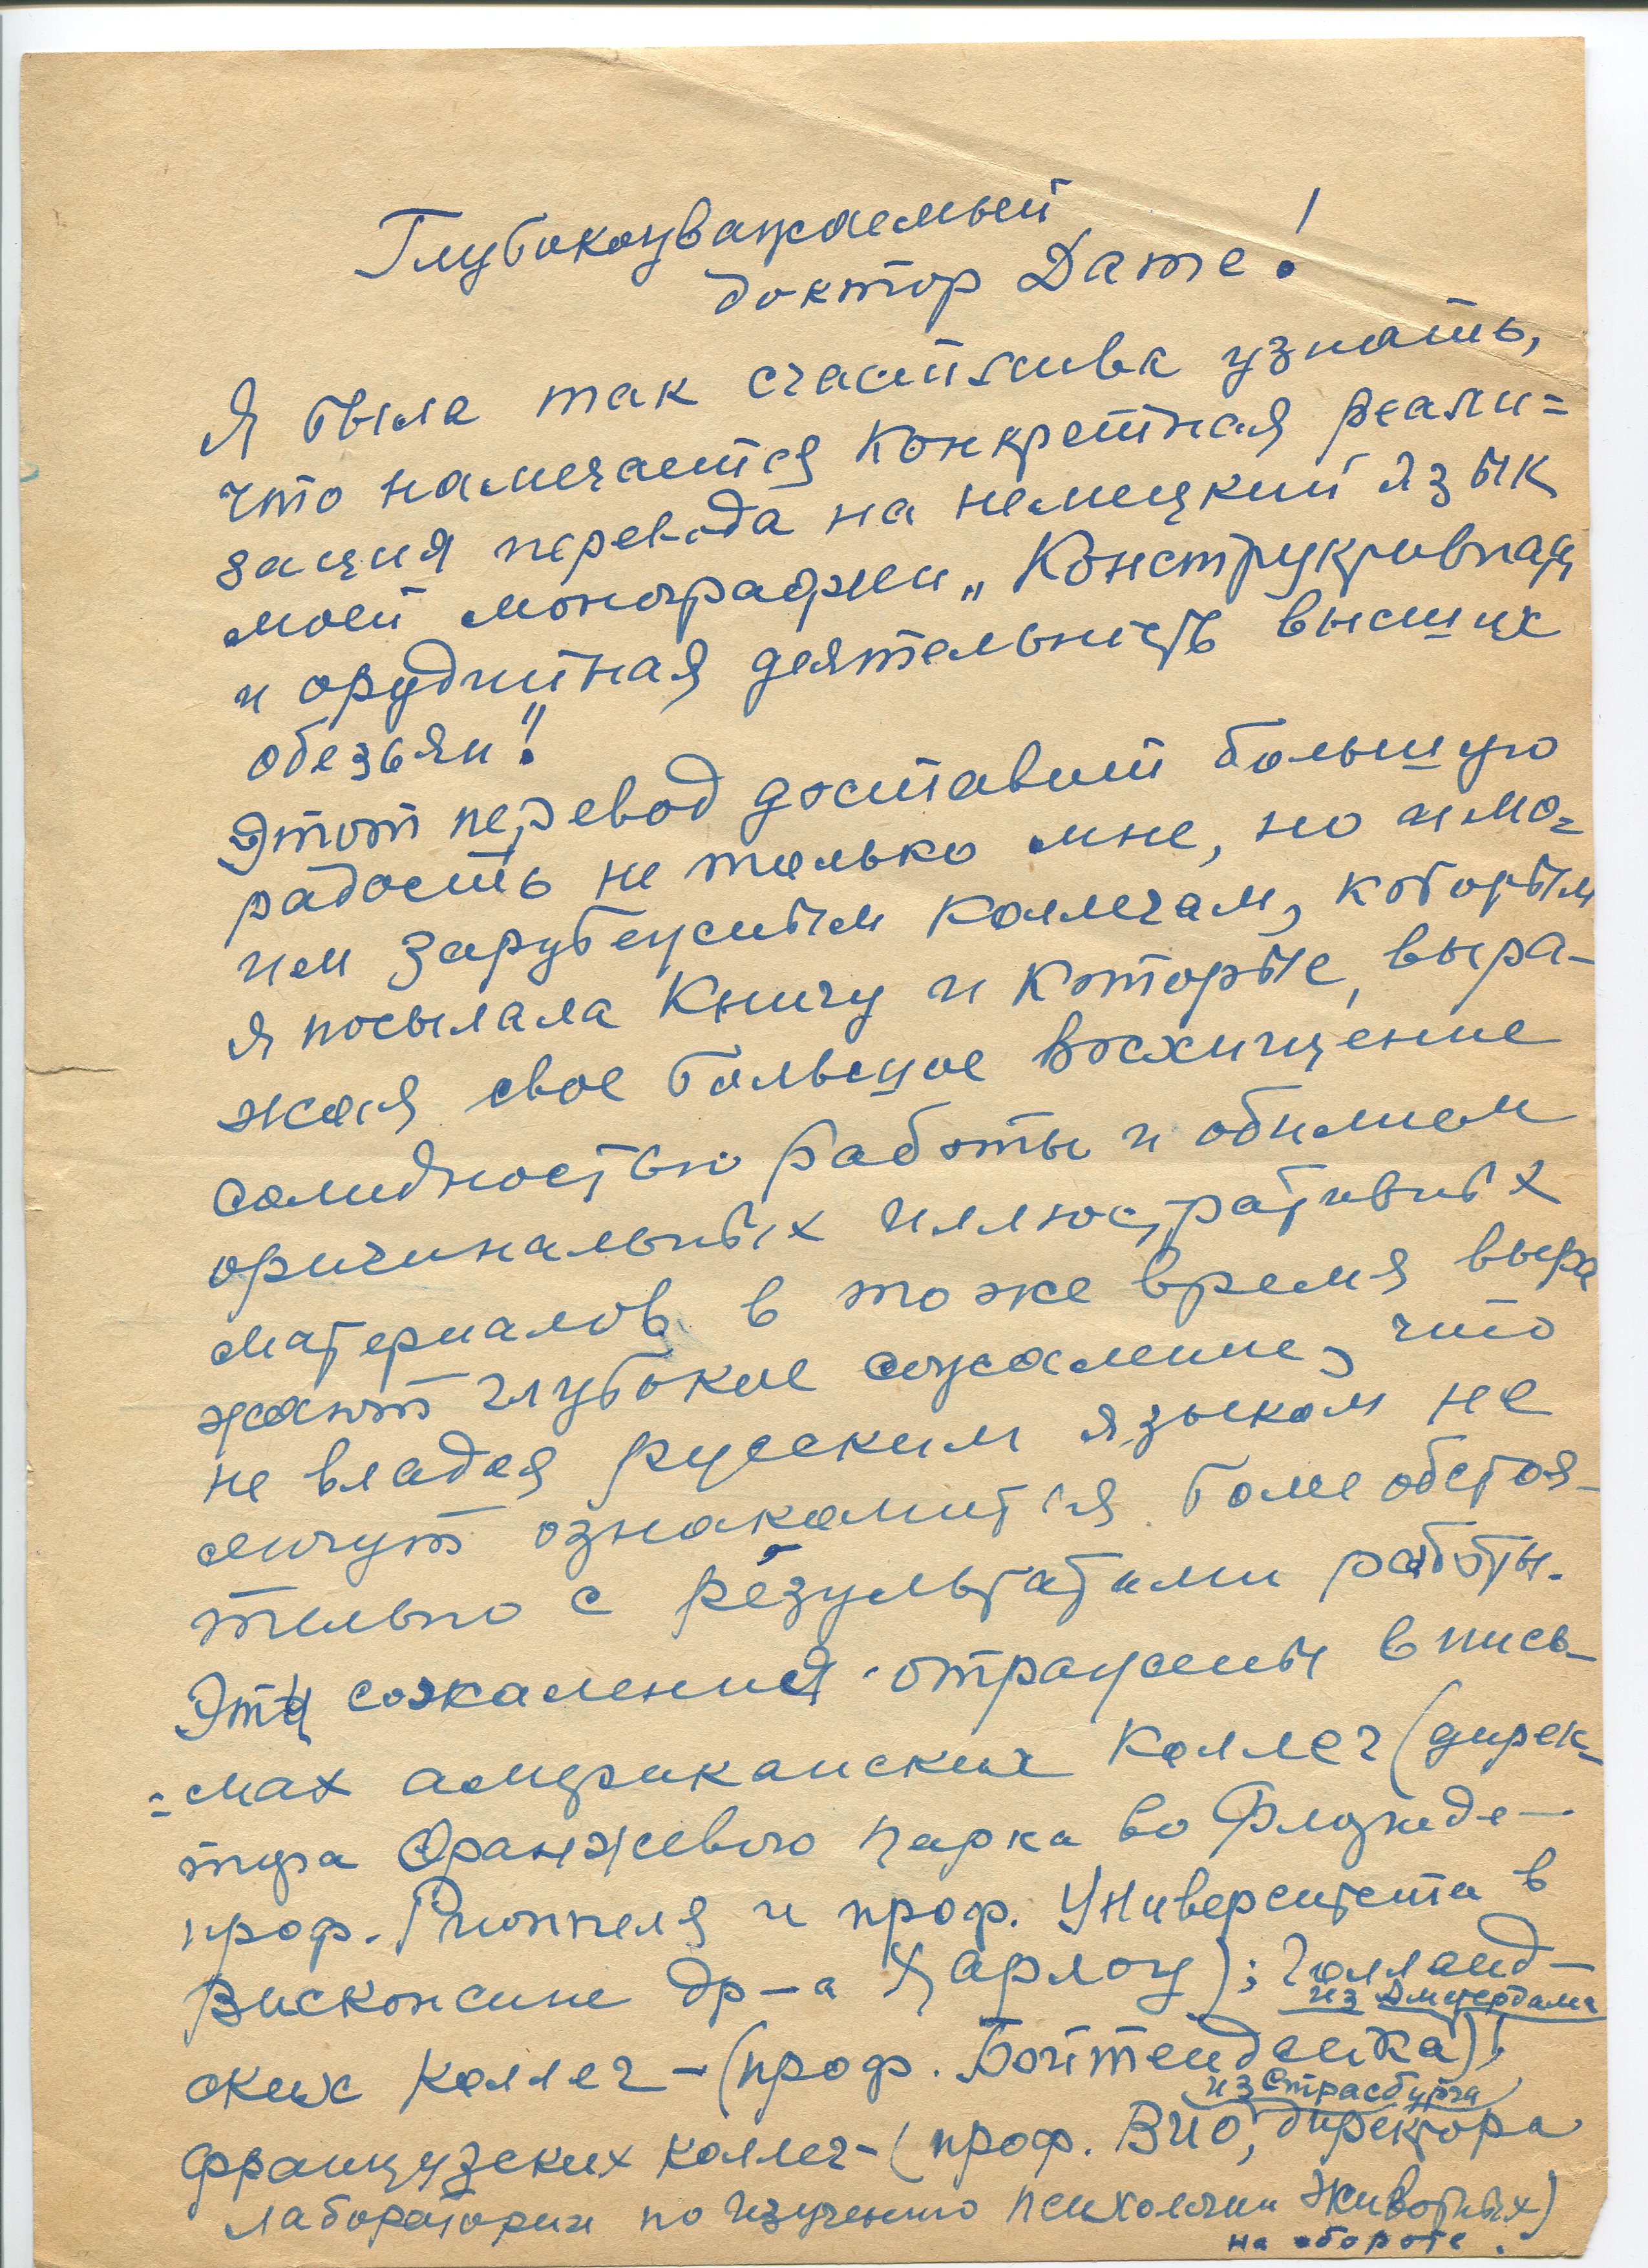 Глубокоуважаемый
доктор Дате!
Я была так счастлива узнать,
что намечается конкретная реали=
зация перевода на немецкий язык
моей монографии „Конструктивная
и орудийная деятельность высших
обезьян"!
Этот перевод доставит большую
радость не только мне, но и мо=
им зарубежным коллегам, которым
я посылала книгу и которые, выра-
жая свое большое восхищение
солидностью работы и обилием
оригинальных иллюстративных
материалов, в то же время выра
жают глубокое сожаление, что
не владея русским языком не
смогут ознакомится более обстоя-
тельно с результатами работы.
Эти сожаления отражены в пись-
=мах американских коллег (дирек-
тора Оранжевого парка во Флориде —
проф. Риопеля и проф. Университета в
Висконсине др-а Харлоу); голланд-
из Амстердама
ских коллег - (проф. Бойтендейка);
из Страсбурга
французских коллег - (проф. ВИО, директора
лаборатории по изучению психологии животных)
на обороте.